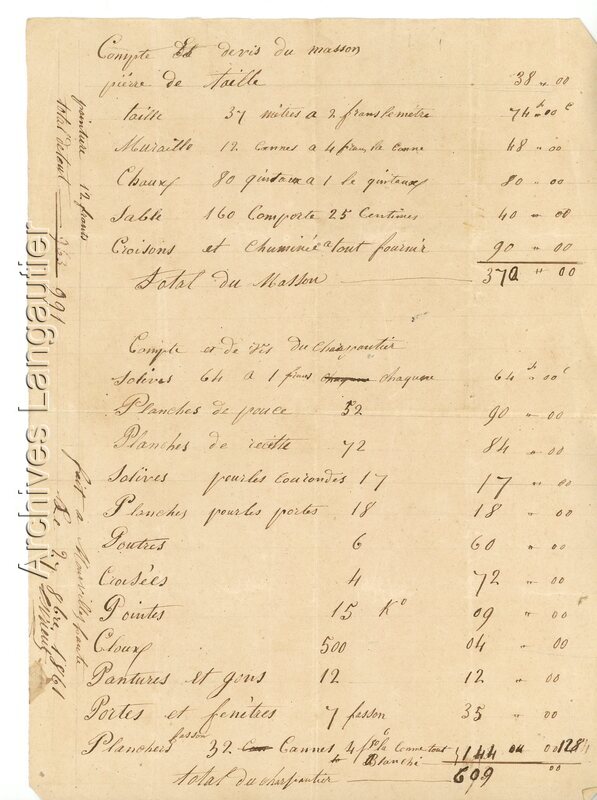 Compte Et devis du masson
piére de taille 38 " 00
taille 37 mètres a 2 frans le mètre 74 f " 00 c
Muraille 12 cannes a 4 frans la canne 48 " 00
Chaux 80 quintaux a 1 le quintaux 80 " 00
Sable 160 Comporte 25 Centimes 40 " 00
Croisons et Chuminée a tout fournir 90 " 00
Total du Masson 370 " 00
Compte et de vis du Charpantier
Solives 64 a 1 frans chaqune 64 f " 00 c
Planches de pouce 52 90 " 00
Planches de recette 72 84 " 00
Solives pour les courondes 17 17 " 00
Planches pour les portes 18 18 " 00
Poutres 6 60 " 00
Croisées 4 72 " 00
Pointes 15 Ko 09 " 00
Cloux 500 04 " 00
Pantures et gons 12 12 " 00
Portes et fenêtres 7 fasson 35 " 00
Planchers fasson 32 Cannes 4 la canne tout Blanchi 144 00 128
total du charpantier 609 00
painture 12 frans
total de tout 991
fait a Mourvilles haute
Le 27 8bre 1861
Archives Langautier